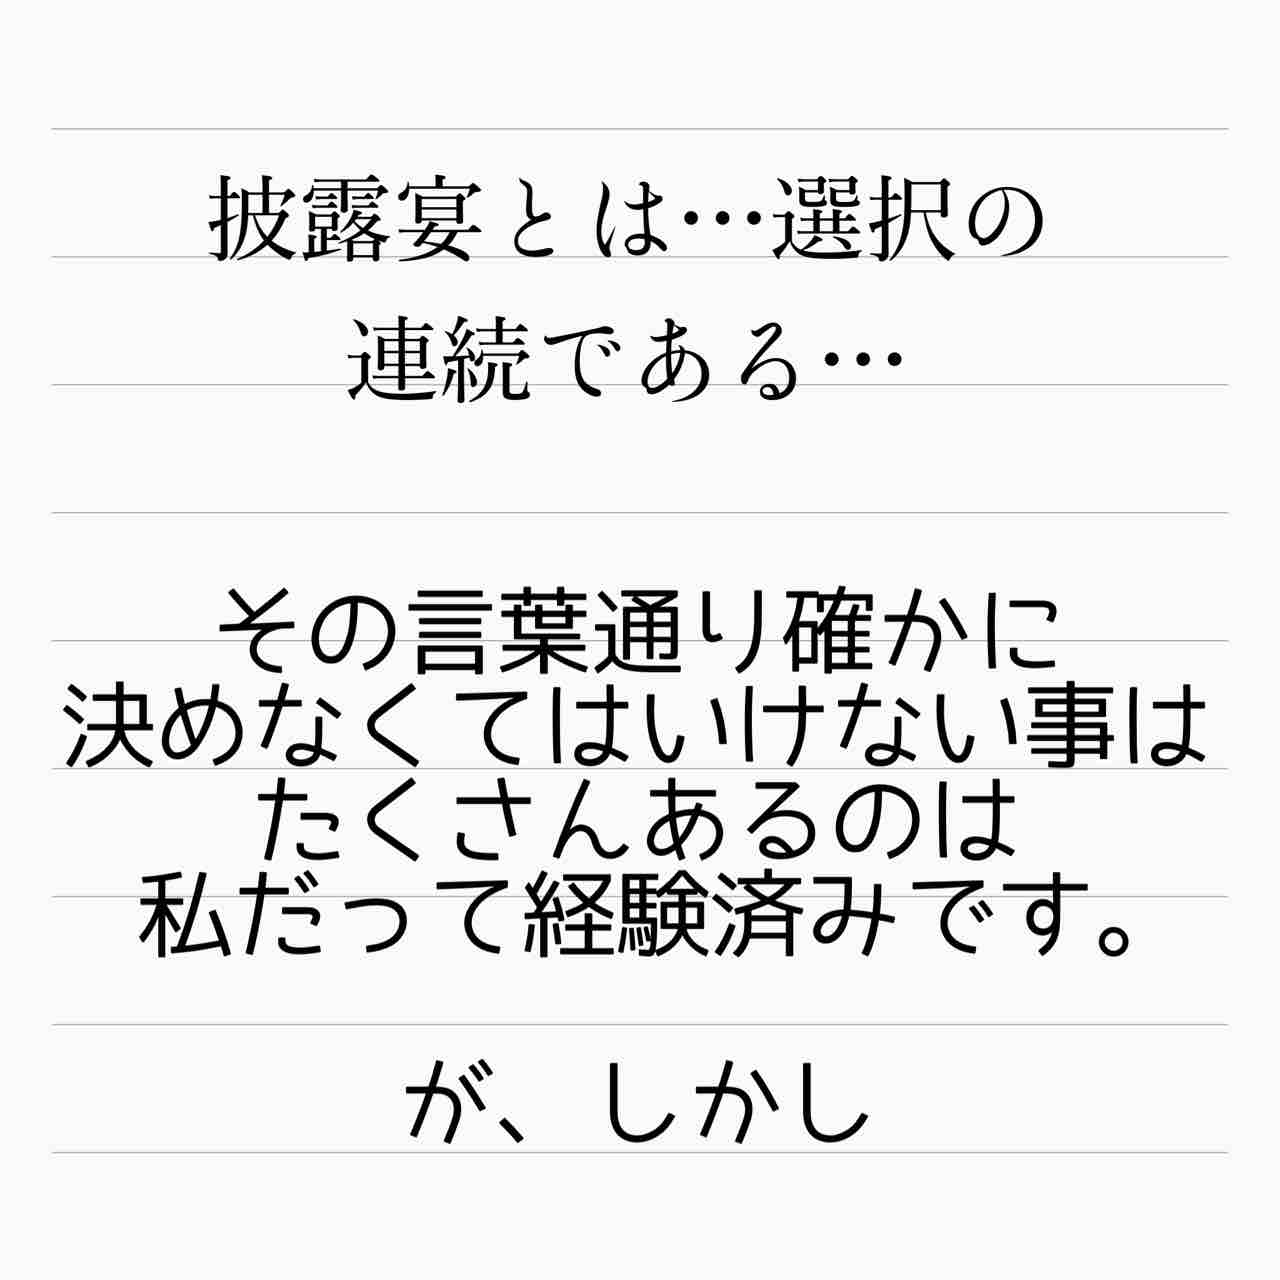 披露宴とは…選択の
連続である…
その言葉通り確かに
決めなくてはいけない事は
たくさんあるのは
私だって経験済みです。
が、しかし